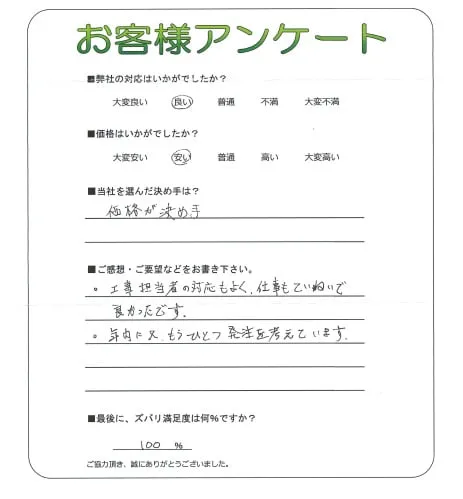 お客様アンケート
■弊社の対応はいかがでしたか？
大変良い 良い 普通 不満 大変不満
■価格はいかがでしたか？
大変安い 安い 普通 高い 大変高い
■当社を選んだ決め手は？
価格が決め手
■ご感想・ご要望などをお書き下さい。
。工事担当者の対応もよく、仕事もていねいで
良かったです。
。年内に又、もうひとつ発注を考えています。
■最後に、ズバリ満足度は何％ですか？
100 %
ご協力頂き、誠にありがとうございました。